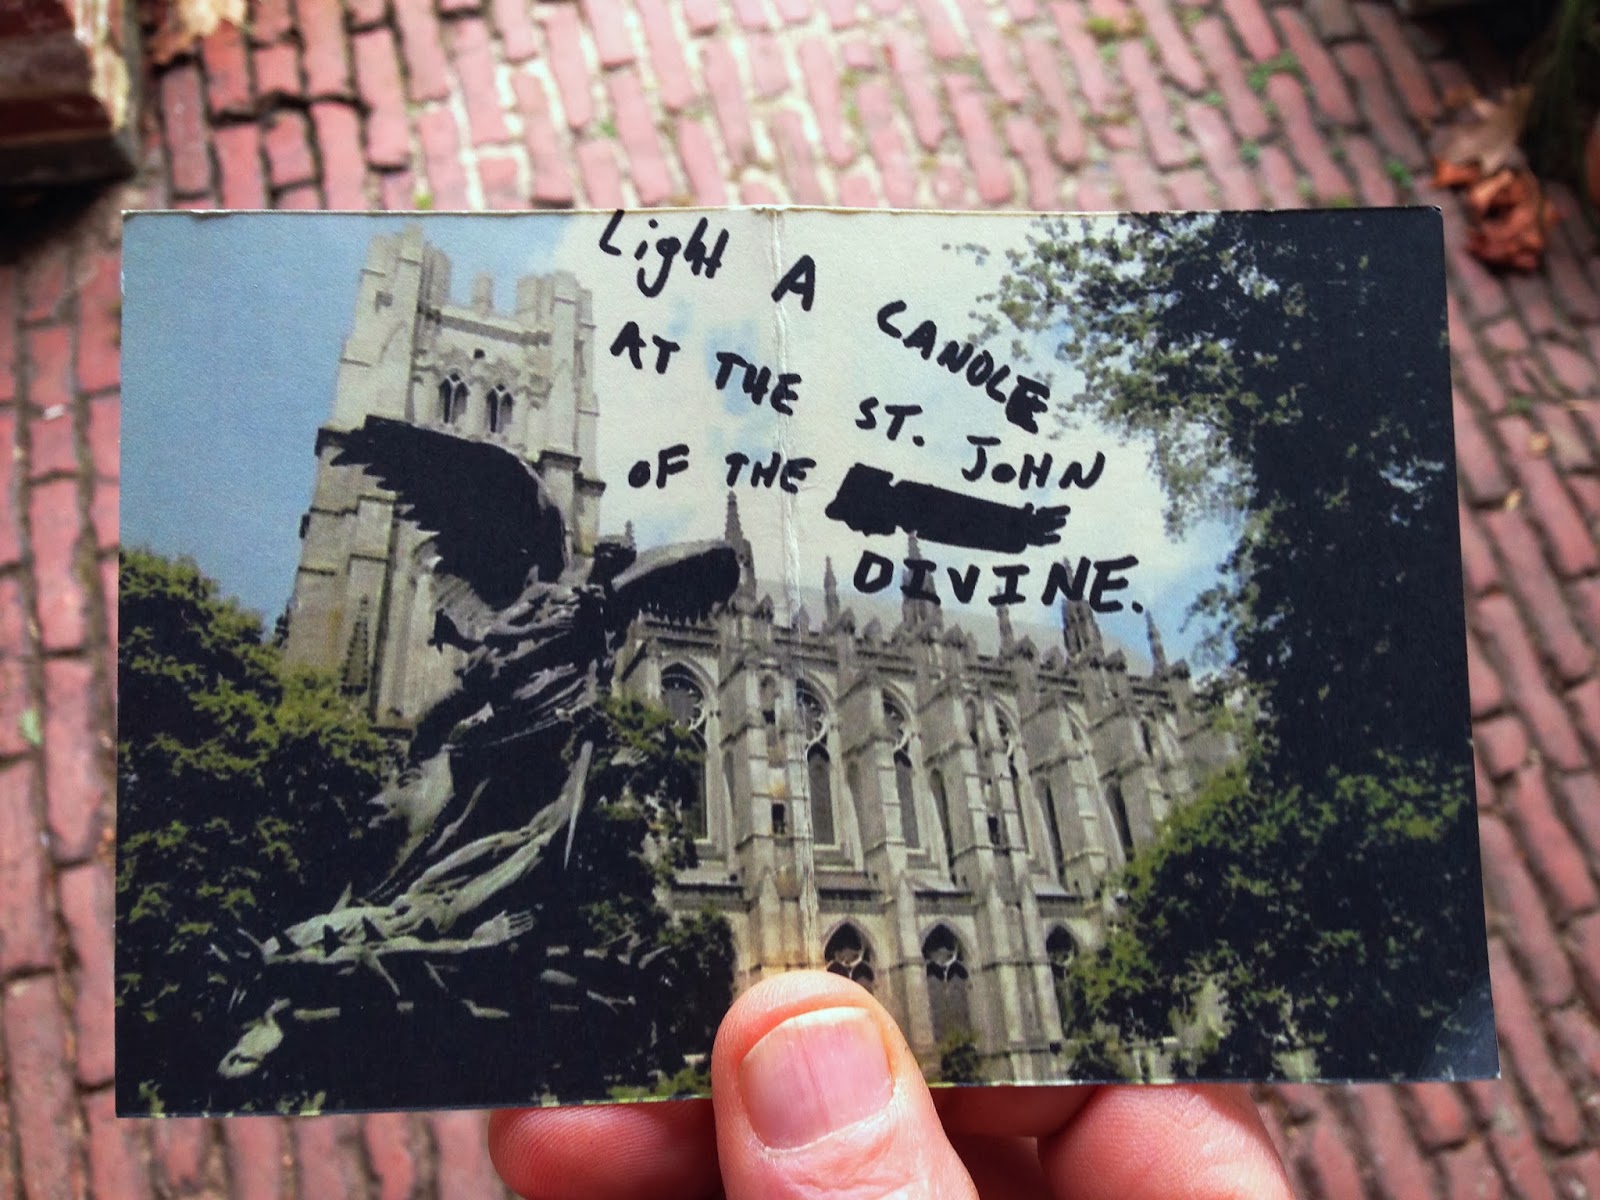 Light A CANDLE
AT THE ST. JOHN
OF THE
DIVINE.